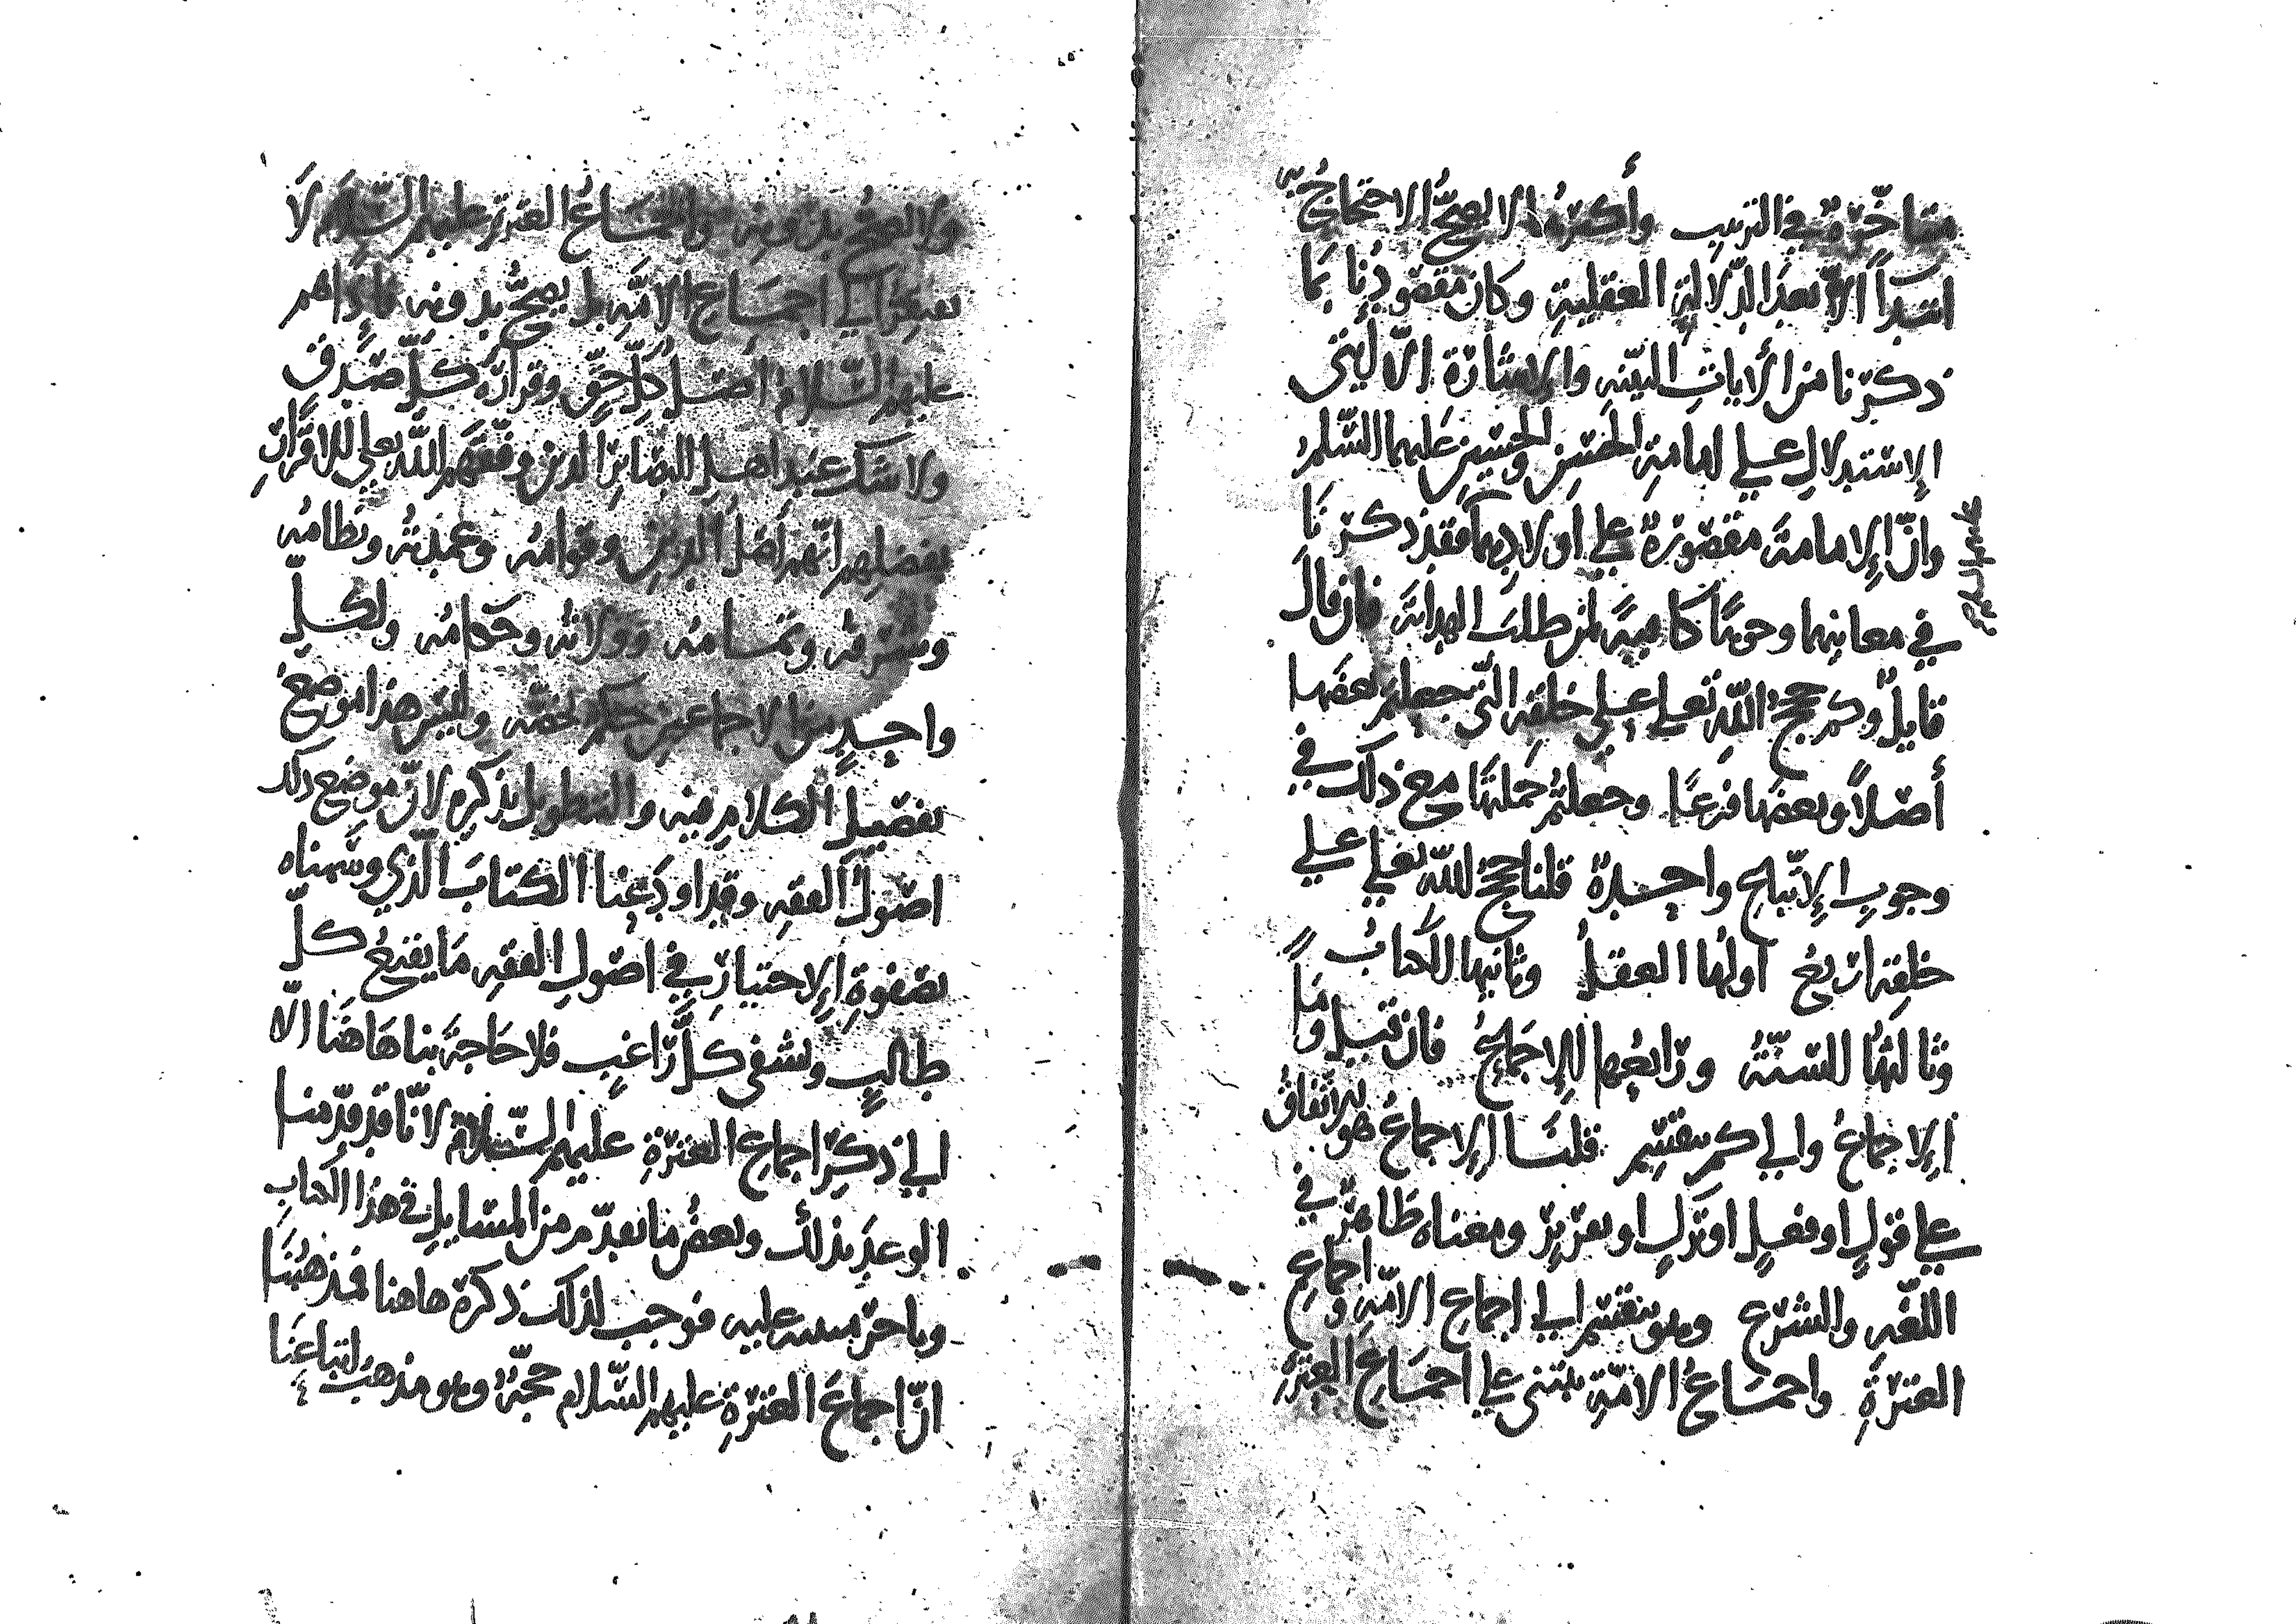 متأخّرة في الترتيب وأكثره لا يصحّ الاحتجاج به
ابتدآ الا بعد الدّلالة العقلية وكان مقصودنا بما
ذكرنا من الأيات البيّنه والاشارة الا ليتى
الإستدلال على امامة الحسن والحسين عليهما السّلم
وانّ الإمامة مقصورة على اولادهما فقد ذكرنا
عليهم السلم
في معانيهما وجوهًا كافية لمن طلب الهداية فان قال
قايل وكم حجج الله تعلى على خلقه التّي جعلتم بعضها
أصلاً وبعضها فرعًا وجعلتم جملتها مع ذلك في
وجوب الإتباع واحدة قلنا حجج الله تعلى على
خلقه اربع اولها العقل وثانيها الكتاب
وثالثها السنّة ورابعها الإجماع فان قيل وما
الإجماع والى كم ينقسم قلنا الإجماع هو الاتفاق
على قول او فعل او ترك او تقرير ومعناه ظاهر في
اللغه والشرع وهو ينقسم الى اجماع الامّه واجماع
العترة واجماع الامّة يبتنى على اجماع العترة
ولا يصحّ بدونه واجماع العترة عليهم السّلام لا
يفتقر الى اجماع الامّه بل يصحّ بدونه فاذًا هم
عليهم السّلام اصل كلّ حقّ وقرارة كلّ صدق
ولا شك عند اهل البصائر الذين وفّقهم الله تعالى للاقرار
بفضلهم انّهم اصل الدين وقوامه وعمدته ونظامه
وشرفه وتمامه وولاته وحكامه ولكلّ
واحد من الاجماعين حكم يخصّه وليس هذا موضع
تفصيل الكلام فيه والتطويل بذكره لانّ موضع ذلك
اصول الفقه وقد اودعنا الكتاب الّذي وسمناه
بصفوة الإختيار في اصول الفقه ما يقنع كلّ
طالب ويشفى كلّ راغب فلا حاجة بنا هاهنا الا
الى ذكر اجماع العترة عليهم السّلام لانّا قد قدّمنا
الوعد بذلك وبعض ما تقدّم من المسايل في هذا الكتاب
وما تأخّر مبني عليه فوجب لذلك ذكره هاهنا فمذهبنا
انّ اجماع العترة عليهم السّلام حجّة وهو مذهب اتباعنا